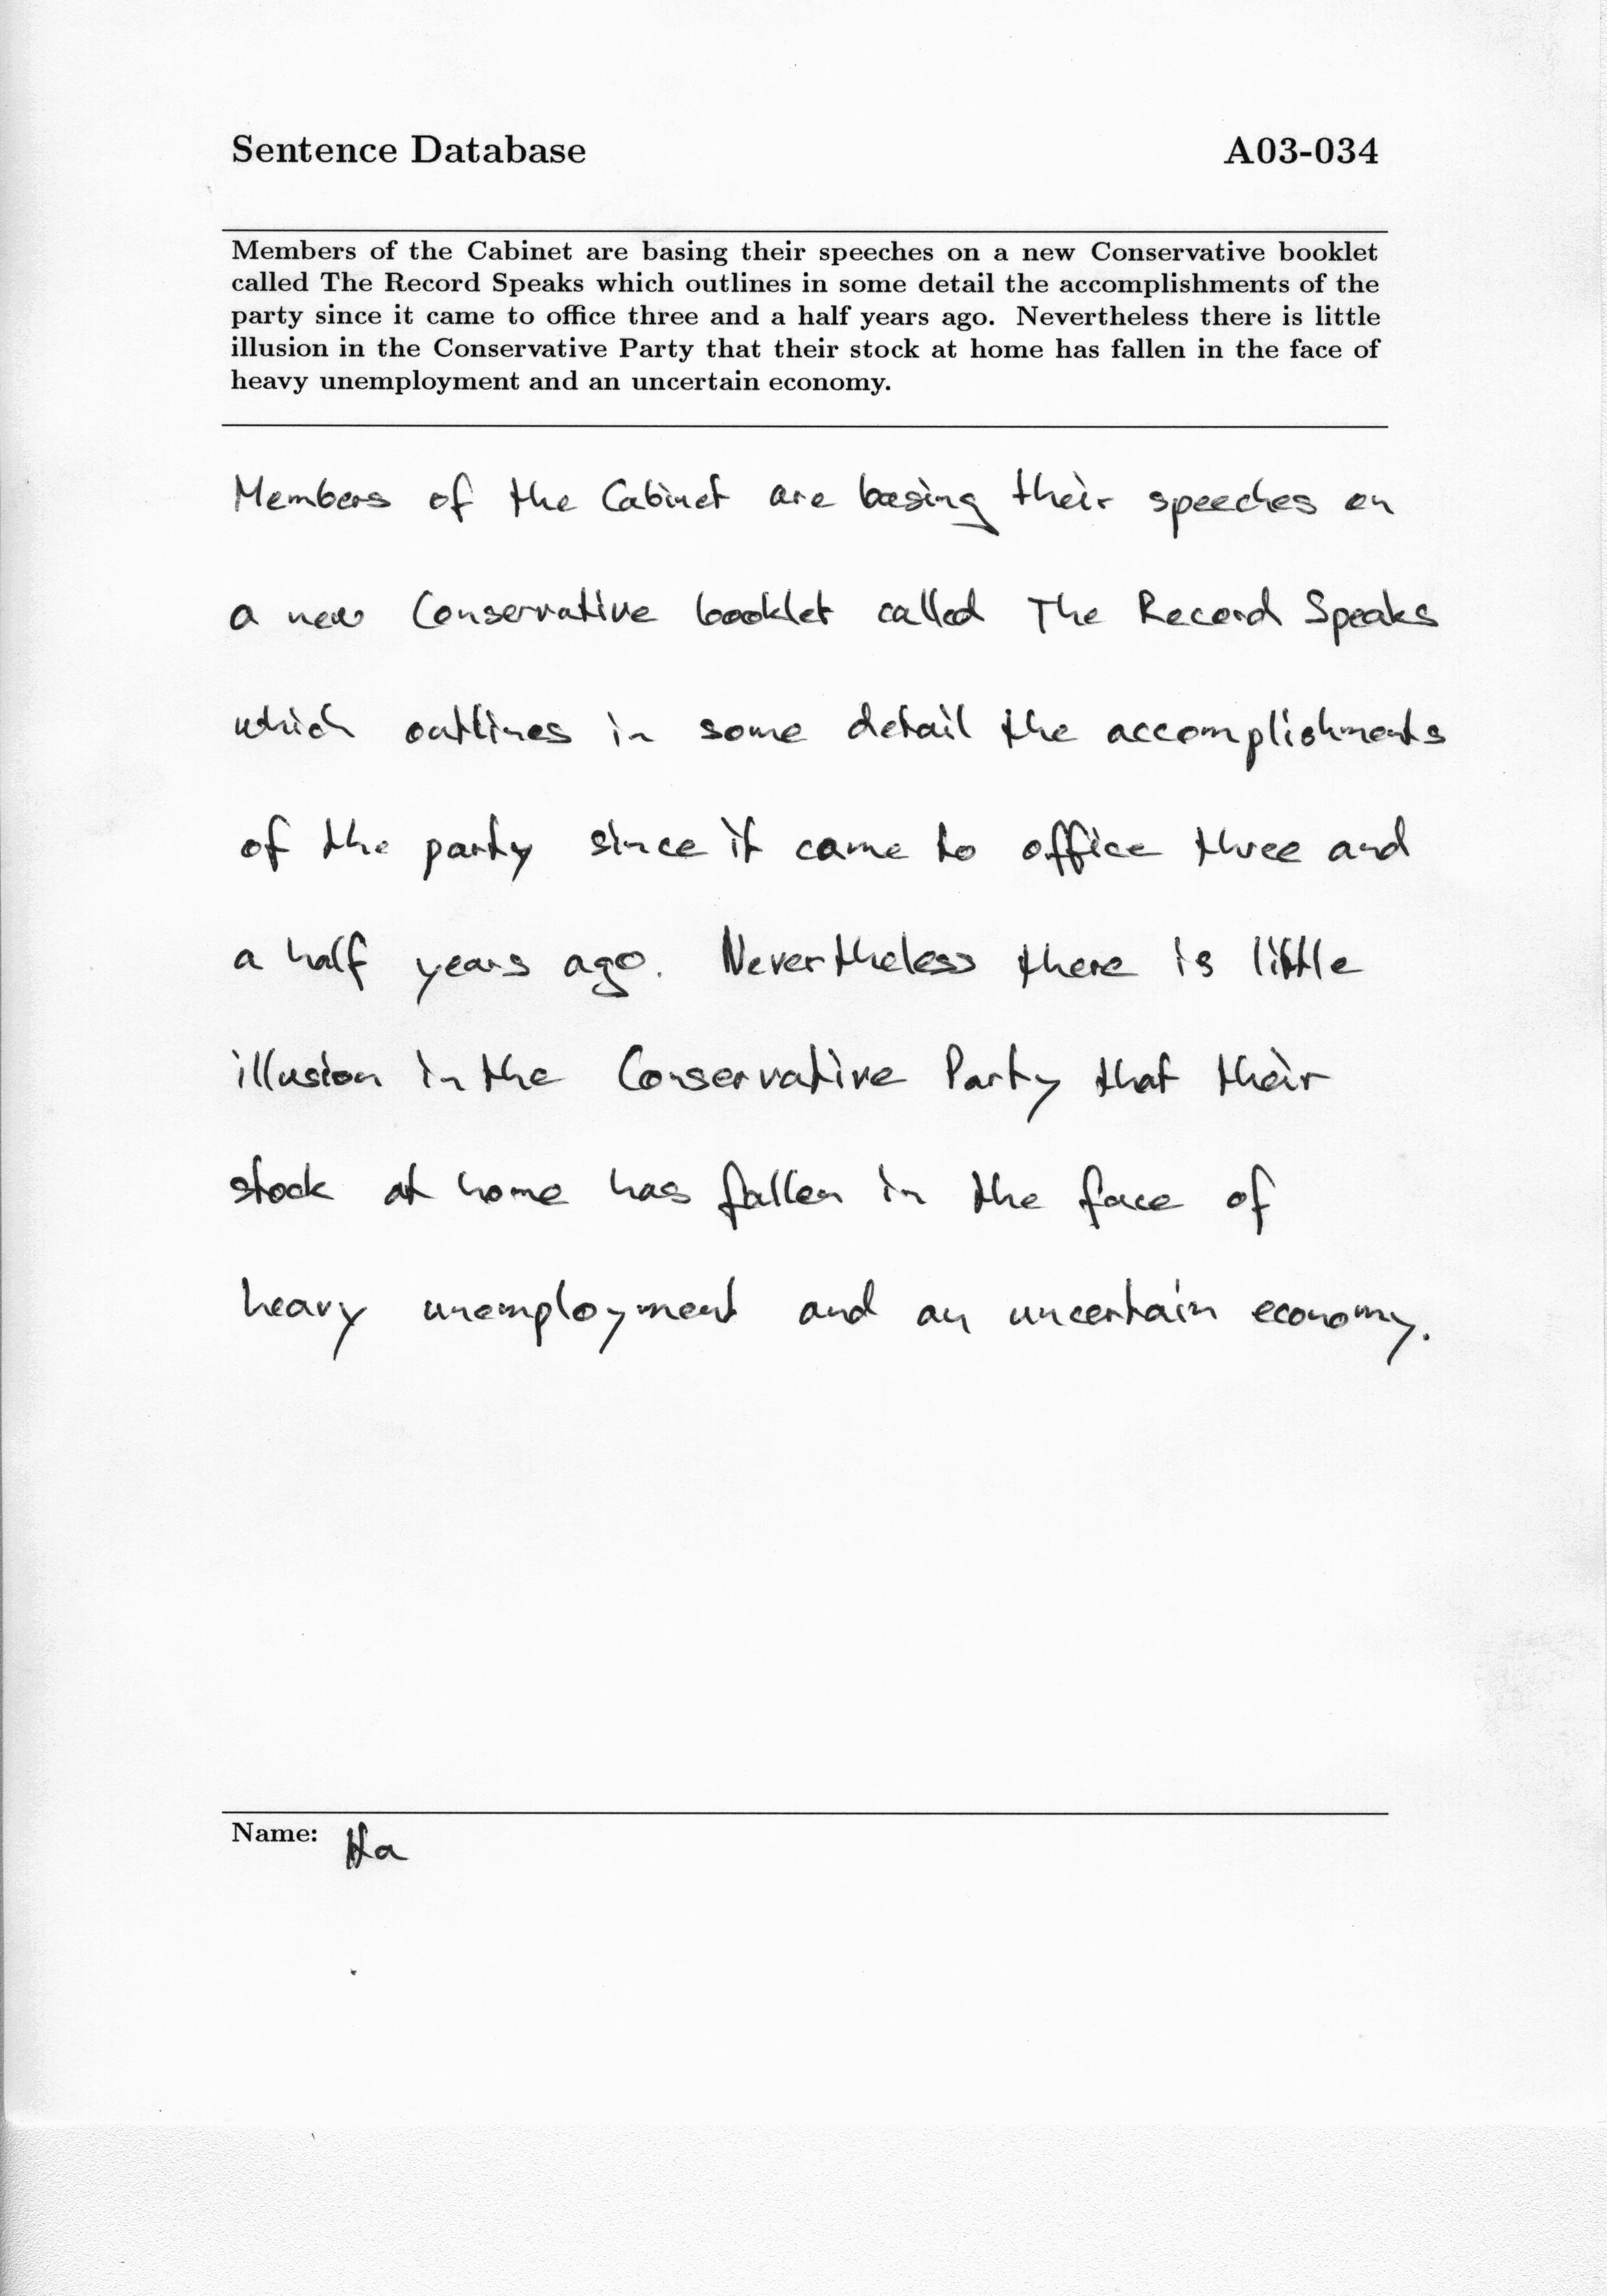 Sentence Database A03-034
Members of the Cabinet are basing their speeches on a new Conservative booklet
called The Record Speaks which outlines in some detail the accomplishments of the
party since it came to office three and a half years ago. Nevertheless there is little
illusion in the Conservative Party that their stock at home has fallen in the face of
heavy unemployment and an uncertain economy.
Members of the Cabinet are basing their speeches on
a new Conservative booklet called The Record Speaks
which outlines in some detail the accomplishments
of the party since it came to office three and
a half years ago. Nevertheless there is little
illusion in the Conservative Party that their
stock at home has fallen in the face of
heavy unemployment and an uncertain economy.
Name: Ha